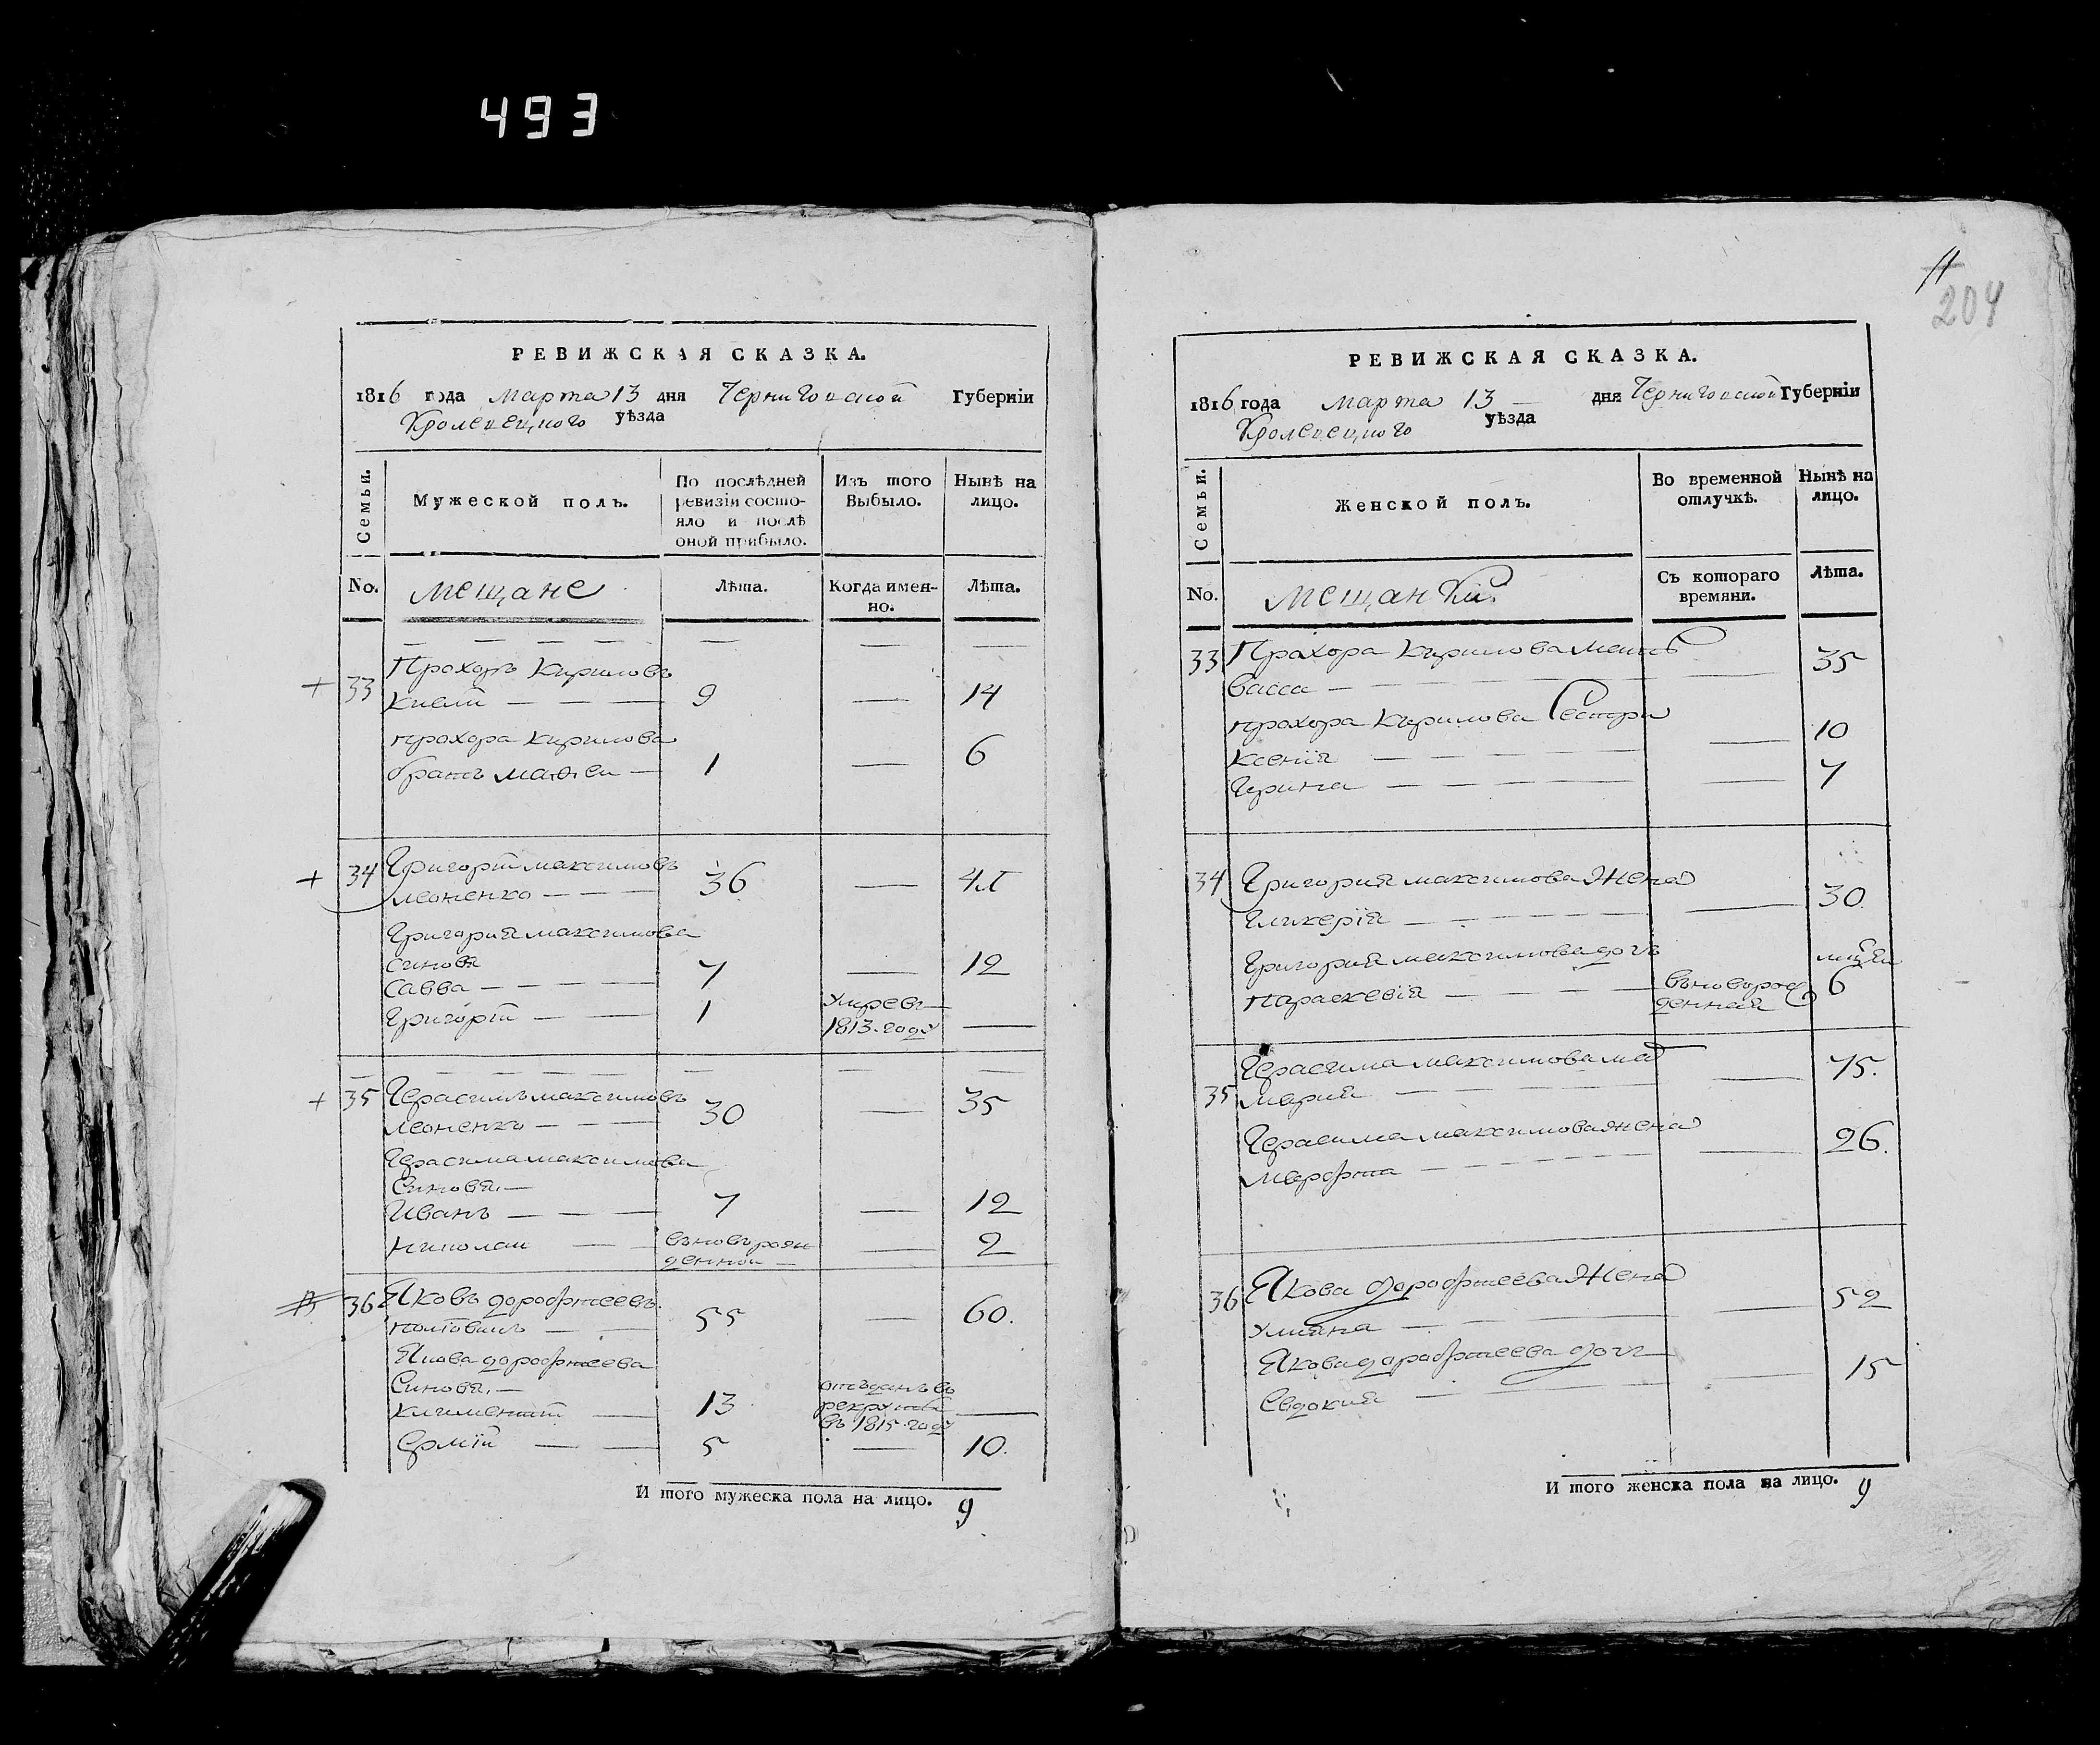 493
РЕВИЖСКАЯ СКАЗКА.
1816 года марта 13 дня Черниговской Губерніи
Кролевецкого уѣзда
Семьи.
Мужеской полъ.
По послѣдней ревизіи состо-
яло и послѣ
оной прибыло.
Изъ того
Выбыло.
Нынѣ на
лицо.
No.
мещане
Лѣта.
Когда имен-
но.
Лѣта.
33 Прохоръ Кириловъ
9 14
прохора Кирилова
братъ матвеи 1 6
34 Григорій максимовъ
леоненко 36 41
Григорія максимова
синовя
Савва 7 12
Григорій 1 умреВъ
1813 году
35 Герасимъ максимовъ
леоненко 30 35
Герасима максимова
Синовя
Иванъ 7 12
николаи вьновьрож
денnои 2
36 Яковъ дорофтеевъ
55 60.
Якова дорофтеева
Синовя
климентій 13 отъданъ въ
рекруты
въ 1815 году
Ермій 5 10.
И того мужеска пола на лицо. 9
11
204
РЕВИЖСКАЯ СКАЗКА.
1816 года марта 13 дня Черниговской Губерніи
Кролевецкого уѣзда
Семьи.
Женской полъ.
Во временной
отлучкѣ.
Нынѣ на
лицо.
No.
мещанки.
Съ котораго
времяни.
Лѣта.
33 Прохора Кирилова мать
Васса 35
прохора Кирилова Сестри
Ксенія 10
Ирина 7
34 Григорія максимова Жена
гликерія 30
Григорія максимова дочъ
параскевія вьноворож
денная 6
35 Герасима максимова ма
марія 75.
Герасима максимова жена
марфта 26.
36 Якова дорофтеева Жена
Улияна 52
Якова дорофтеева дочъ
Евдокия 15
И того женска пола на лицо. 9